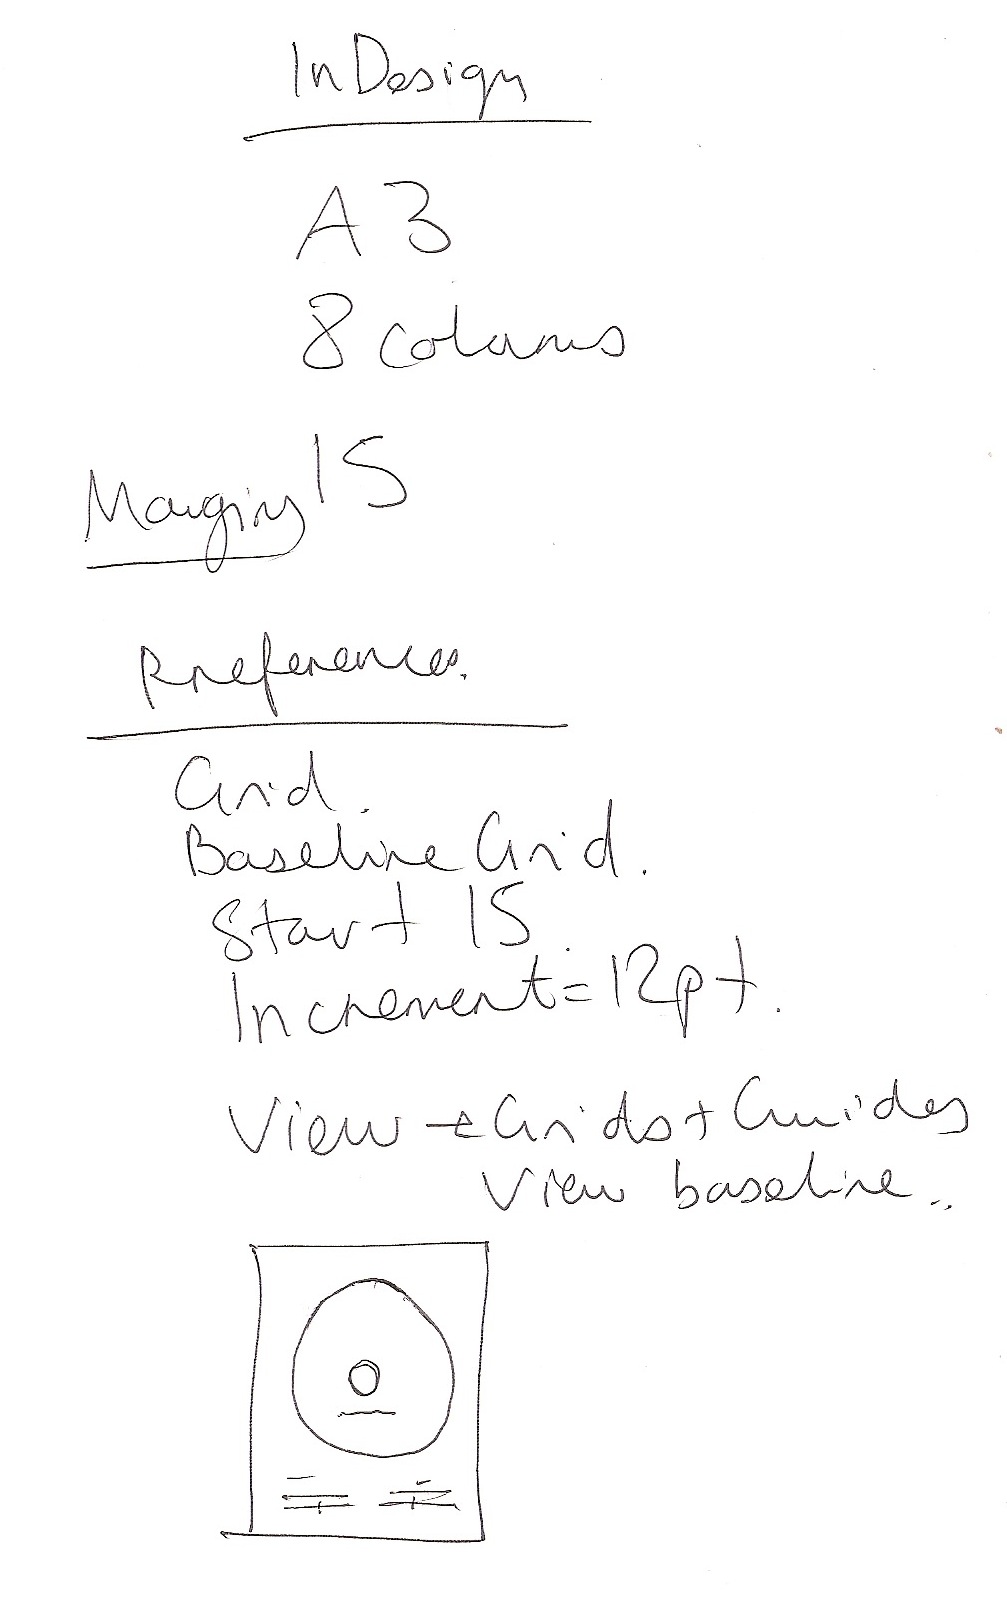 InDesign
A3
8 columns
Margins 15
Preferences.
Grid.
Baseline Grid.
Start 15
Increment = 12pt.
View → Grids + Guides
View baseline..